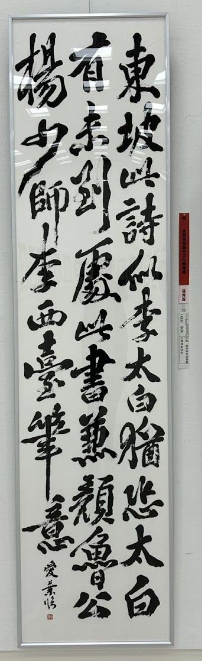 東坡此詩似李太白猶恐太白
有未到處此書兼顏魯公
楊少師李西臺筆意